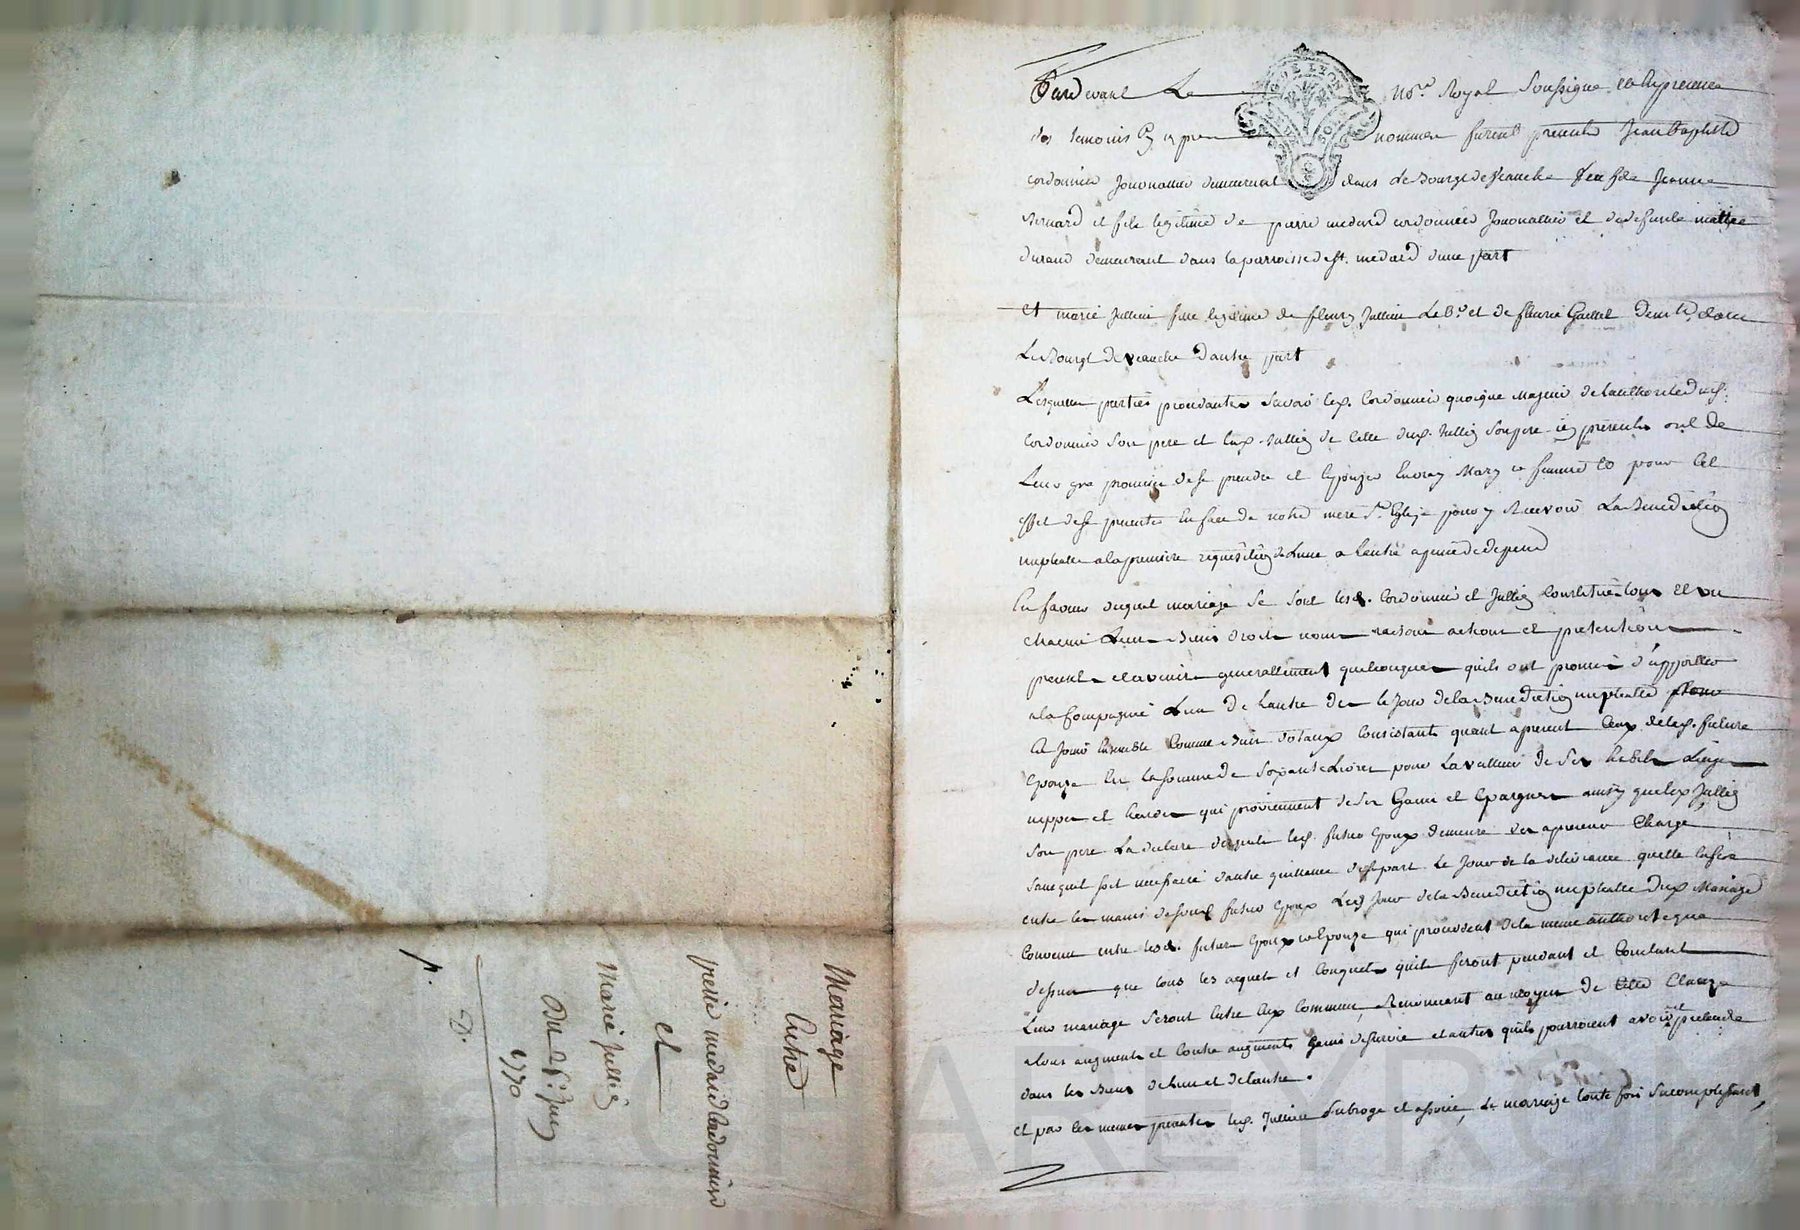 Pardevant Le no.re Royal Soussigné et En presence
des temoins cy apres nommés furent presents Jean Baptiste
cordonnier Jouvonattier demeurant dans le Bourg de Veauche veuf de Jeanne
Bernard et fils legitime de pierre medard cordonnier Jouvonattier et de defunte
durand demeurant dans la parroisse de st. medard d'une part
Et marie Jullien fille legitime de fleury Jullien Le B.r et de fleurie Gaillet dem.t dans
Le Bourgt de Veauche d'autre part
Lesquelles parties procedantes savoir led. Cordonnier quoique Majeur de l'authorité dud.
Cordonnier son pere et lad. Jullien de celle dud. Jullien son pere icy presents ont de
Leur gre promis de se prendre et Epouser En vray Mary et femme et pour Cet
effet de se presenter En face de notre mere S.te Eglize pour y Recevoir La Benediction
nuptialle a la premiere requisition de L'une a L'autre a peine de depens
En faveur duquel mariage se sont lesd. Cordonnier et Jullien Constitué tous Et un
chacuns Leurs Biens droits noms raisons actions et pretentions
presents et avenirs generallement quelconques quils ont promis d'apporter
a la Compagnie L'un de L'autre des le Jour de la Benediction nuptialle
Et Jouir Ensemble Comme Biens dotaux Consistants quant apresent Ceux de lad. future
Epouze En la somme de soixante Livres pour La valleur de ses habits Linges
nippes et hardes qui proviennent de ses Gains et Epargnes ainsy que led. Jullien
son pere La declare desquels led. futur Epoux demeure des apresent Chargé
sans quil soit necessaire d'autre quittance de sa part Le Jour de la delivrance quelle En fera
entre les mains de sond. futur Epoux Led. Jour de la Benediction nuptialle dud. Mariage
Convenu entre lesd. futurs Epoux et Epouze qui procedent de la meme authorité que
dessus que tous les acquets et Conquets quils feront pendant et Constant
Leur mariage seront Entre Eux Communs Renonceant au moyen de Cette Clauze
a tous augments et Contre augments Gains de survie et autres quils pourroient avoir et pretendre
dans les Biens de L'un et de L'autre.
Et par les memes presentes led. Jullien subroge et associe, Le mariage toute fois s'accomplissant,
Mariage
Entre
pierre medard Cordonnier
et
Marie Jullien
Du 25e Juin
1770
D.
CHAREYRON